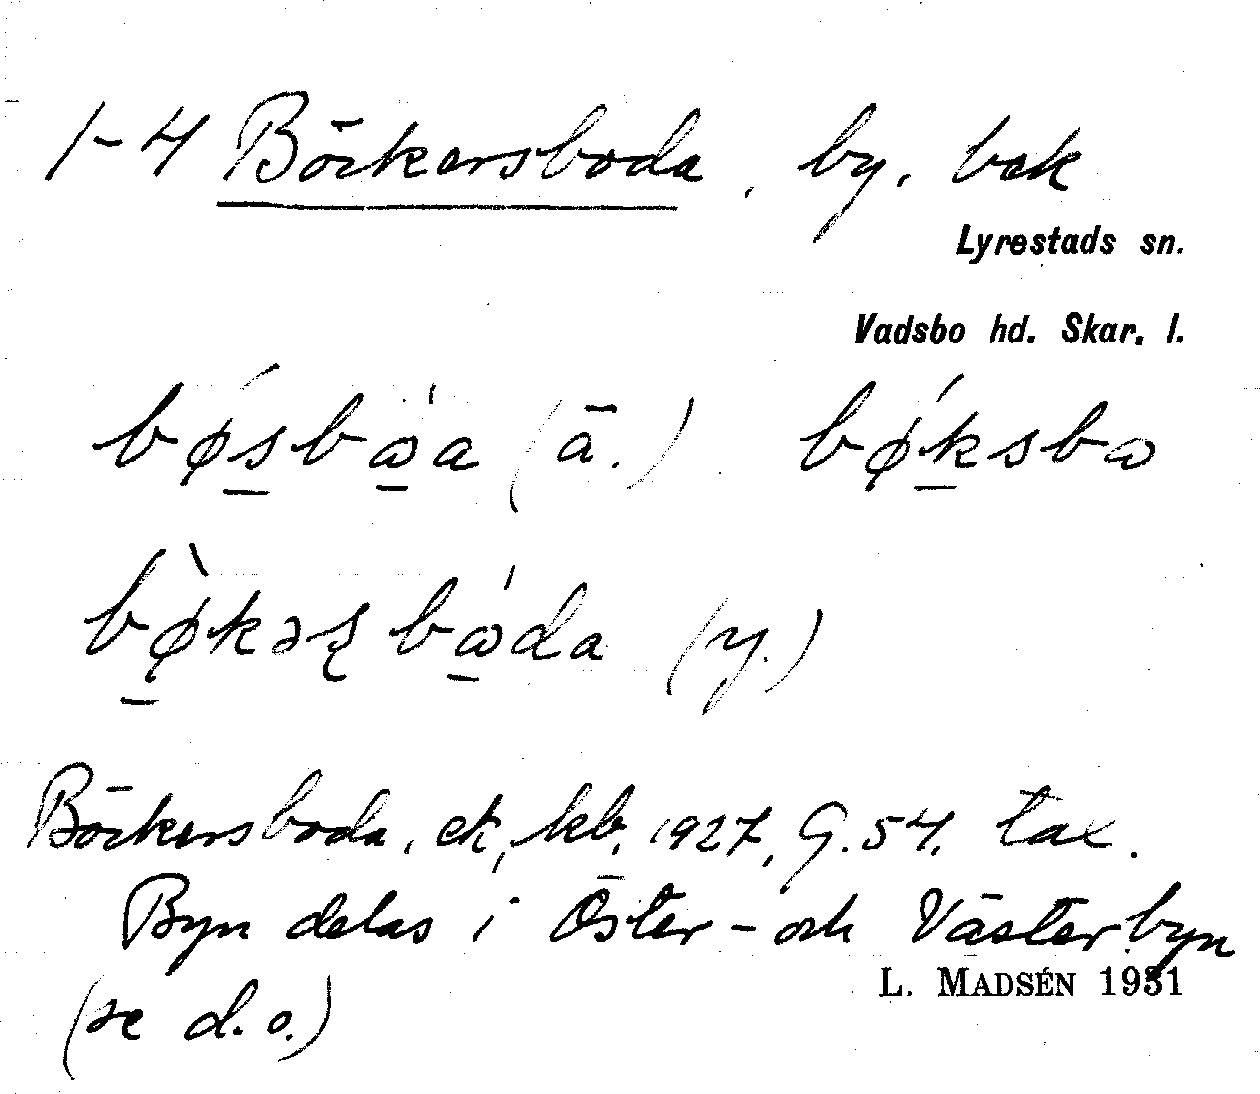 1-4 Böckersboda, by, bek
Lyrestads sn.
Vadsbo hd. Skar. l.
bǿsbωa (ä.) bǿksbω
bø̀kəʂbωda (y.)
Böckersboda, ek, kb, 1927, G.54, tax.
Byn delas i Öster- och Västerbyn
L. MADSÉN 1931
(se d.o.)